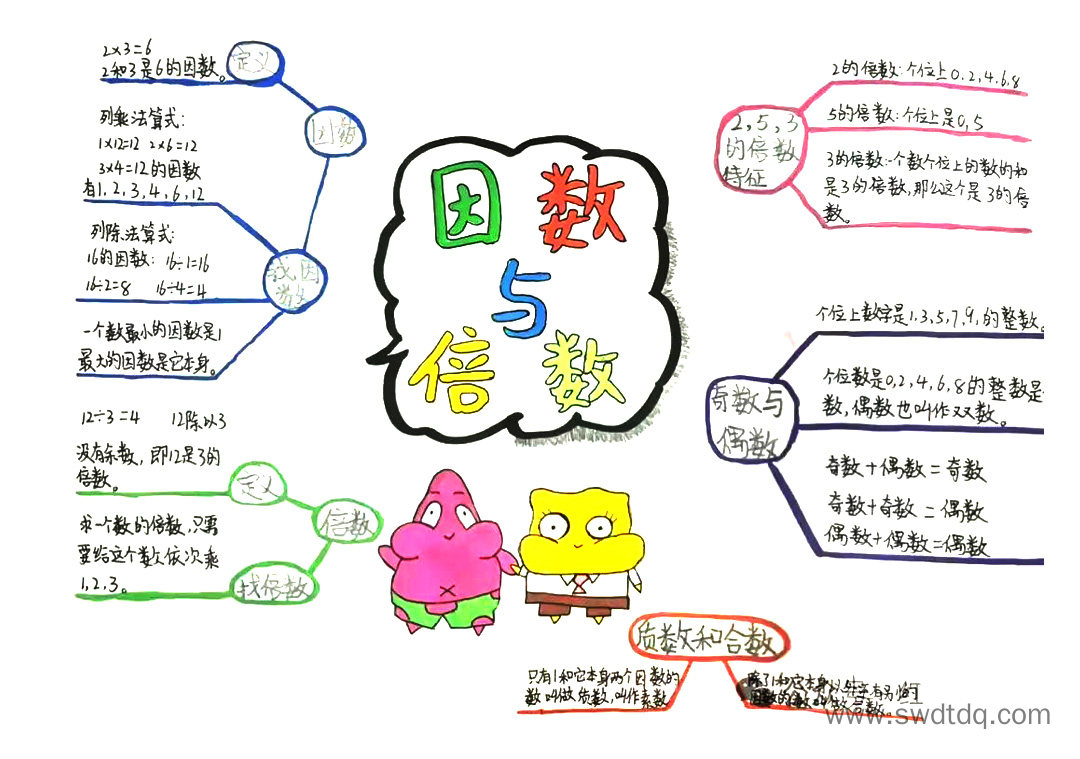 因数
与
倍数
2×3=6
2和3是6的因数。
定义
因数
列乘法算式:
1×12=12 2×6=12
3×4=12的因数
有1,2,3,4,6,12
列除法算式:
16的因数: 16÷1=16
16÷2=8 16÷4=4
找因
数
一个数最小的因数是1
最大的因数是它本身。
12÷3=4 12除以3
没有余数,即12是3的
倍数。
定义
倍数
求一个数的倍数,只需
要给这个数依次乘
1,2,3。
找倍数
2,5,3
的倍数
特征
2的倍数:个位上0,2,4,6,8
5的倍数:个位上是0,5
3的倍数:一个数个位上的数的和
是3的倍数,那么这个是3的倍
数。
奇数与
偶数
个位上数字是1,3,5,7,9,的整数。
个位数是0,2,4,6,8的整数是
数,偶数也叫作双数。
奇数+偶数=奇数
奇数+奇数=偶数
偶数+偶数=偶数
质数和合数
只有1和它本身两个因数的
数叫做质数,叫作素数
除了1和它本身以外还有别的
因数的数叫做合数。
www.swdtdq.com